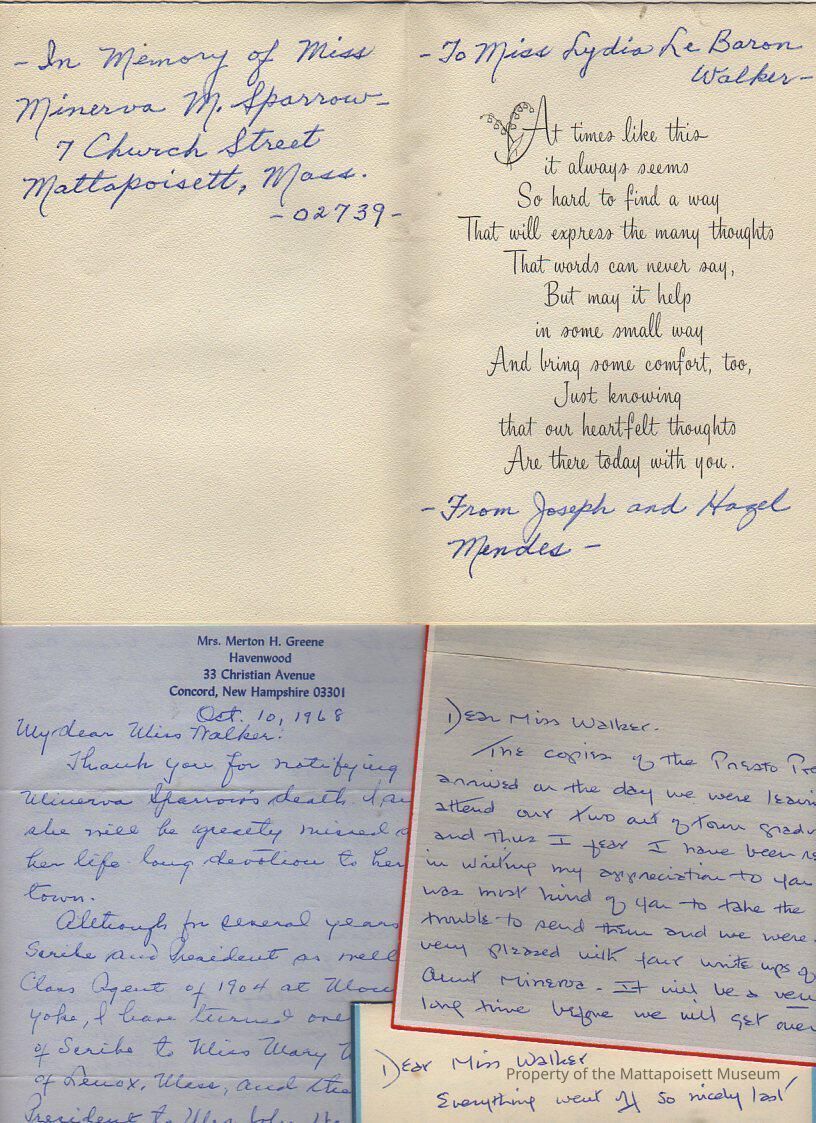 - In Memory of Miss
Minerva M. Sparrow -
7 Church Street
Mattapoisett, Mass.
- 02739 -
- To Miss Lydia Le Baron
Walker -
At times like this
it always seems
So hard to find a way
That will express the many thoughts
That words can never say,
But may it help
in some small way
And bring some comfort, too,
Just knowing
that our heartfelt thoughts
Are there today with you.
- From Joseph and Hazel
Mendes -
Mrs. Merton H. Greene
Havenwood
33 Christian Avenue
Concord, New Hampshire 03301
Oct. 10, 1968
My dear Miss Walker:
Thank you for notifying
Minerva Sparrow's death. I
she will be greatly missed
her life-long devotion to her
town.
Although for several years
Scribe and President as well
Class Agent of 1904 at
yoke, I have turned over
of Scribe to Miss Mary
of Lenox, Mass, and the
President to
Dear Miss Walker.
The copies of the Presto
arrived on the day we were
attend our two out of town
and thus I fear I have been
in writing my appreciation to you
was most kind of you to take the
trouble to send them and we were
very pleased with your write ups of
Aunt Minerva. It will be a
long time before we will get over
Dear Miss Walker
Everything went off so nicely last
Property of the Mattapoisett Museum